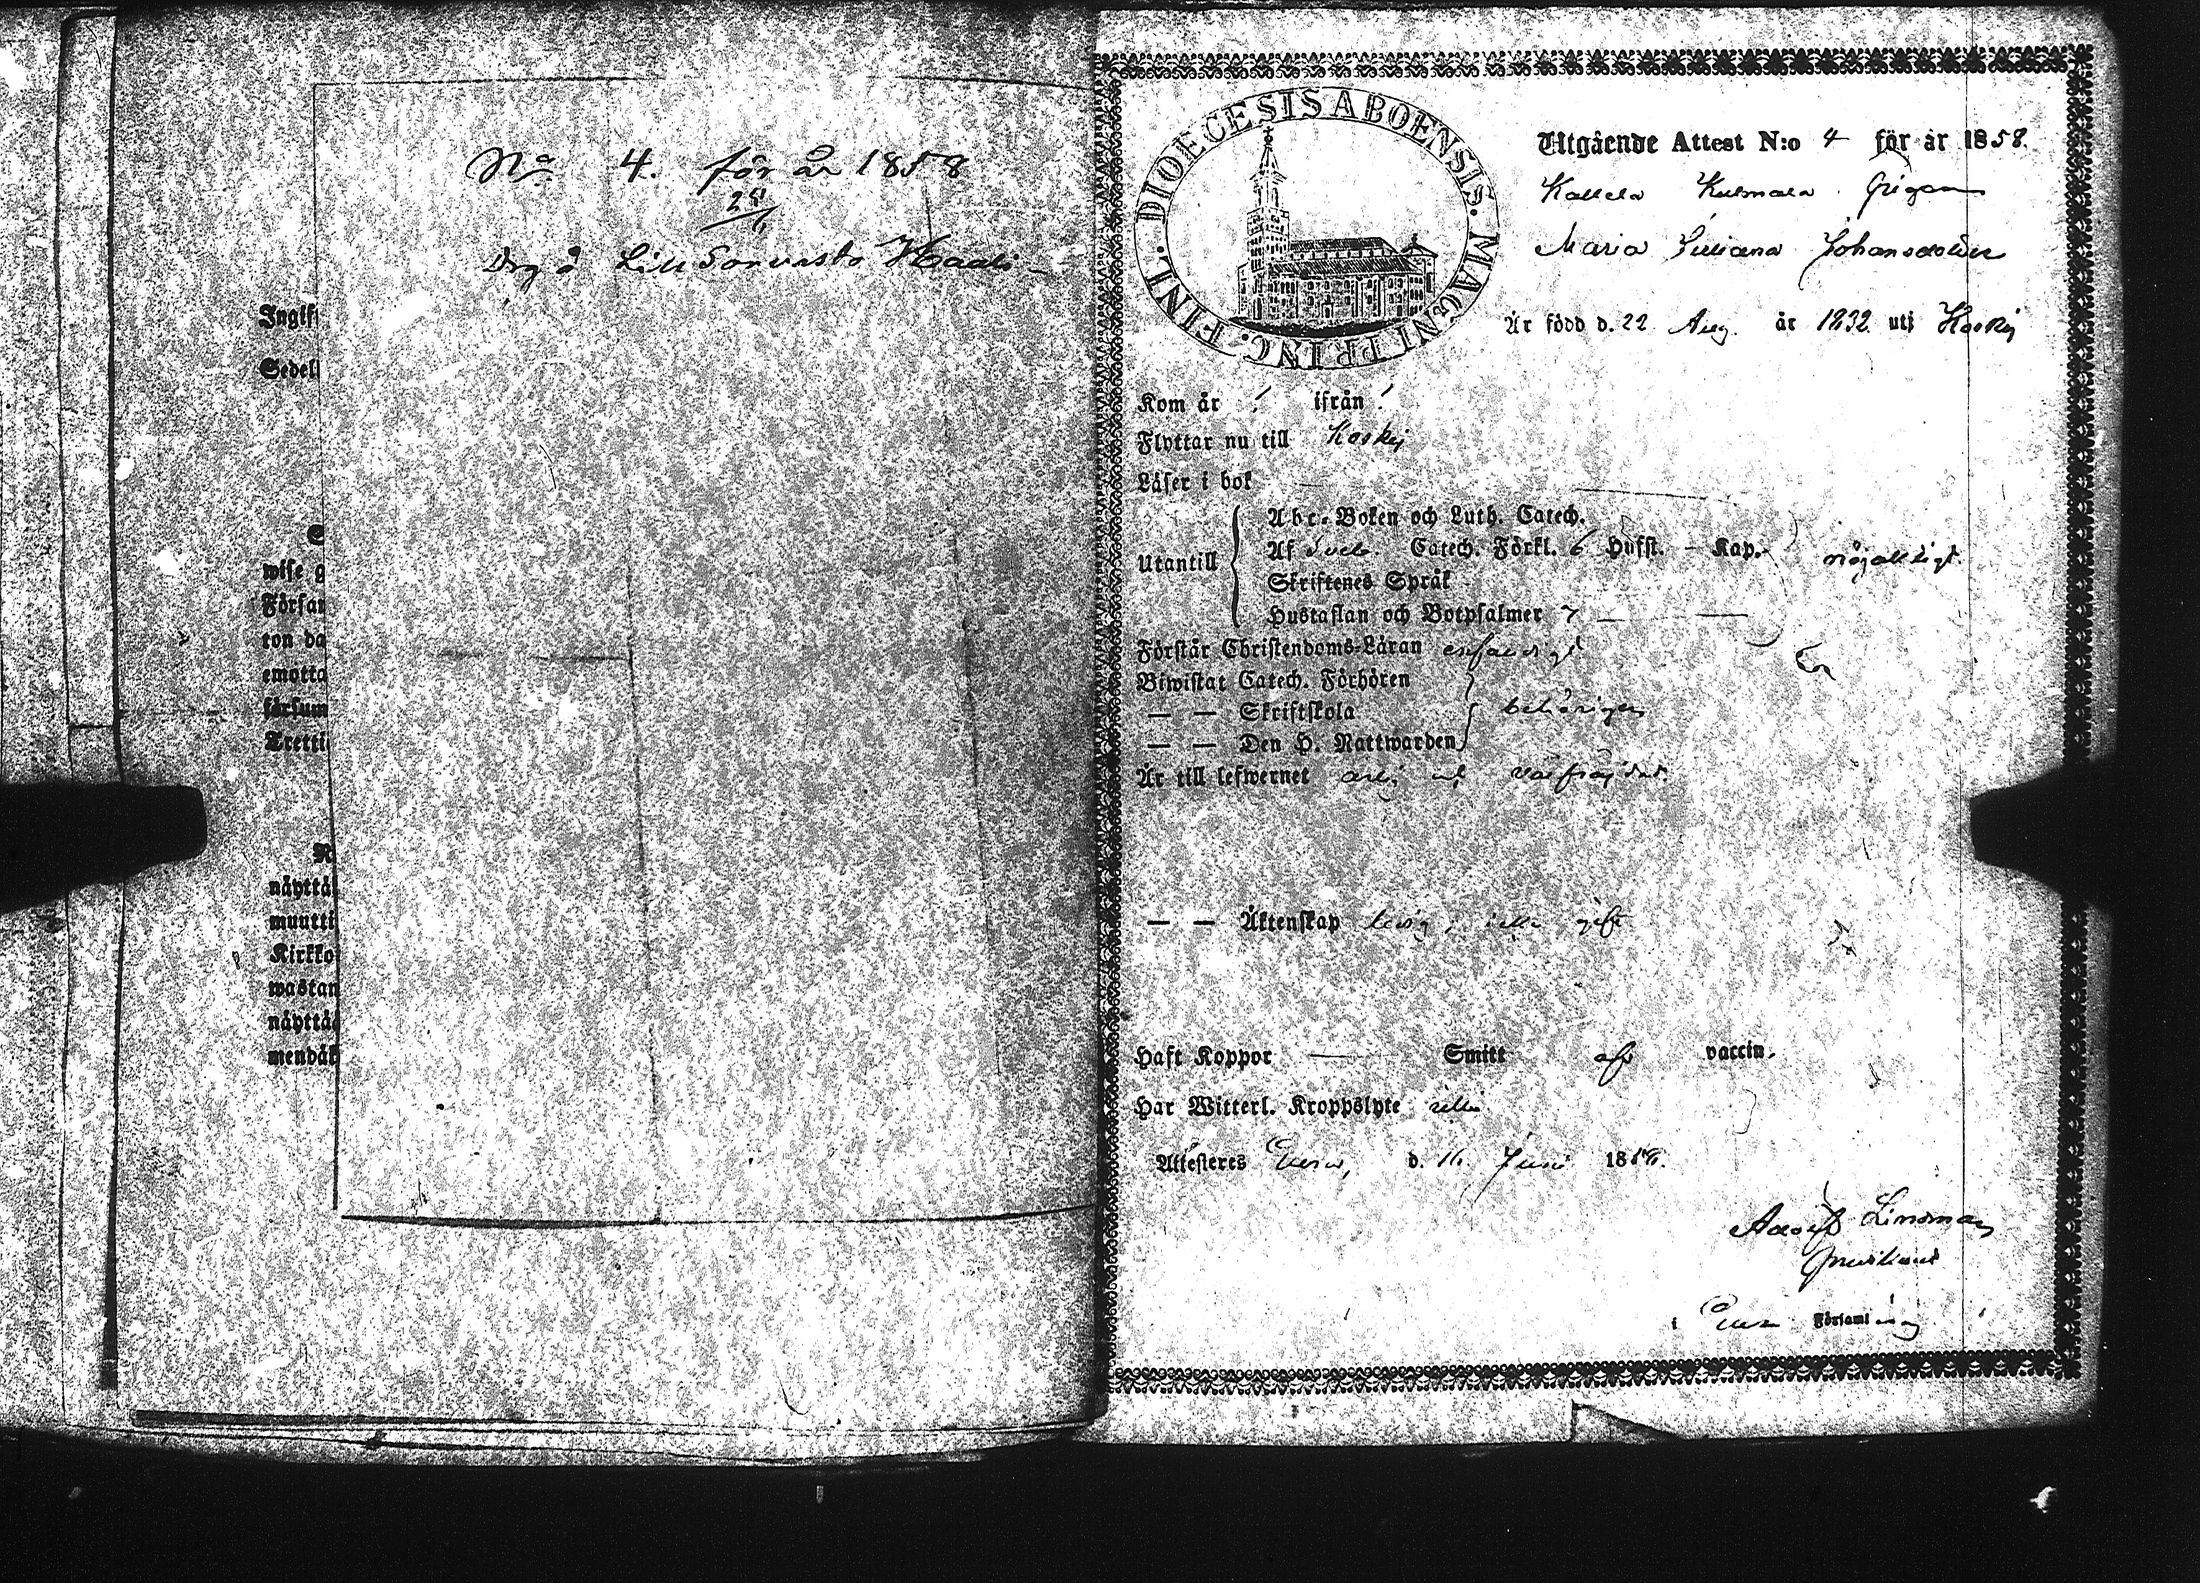 No 4. för år 1858
25/1
Drg å Lill Sorvasto Haali
Ingift
Sedell
wise g
Försam
ton da
emotta
försum
Tretti
näyttä
muutti
Kirkko
wastan
näyttä
mendäk
DIOECESIS ABOENSIS. MAGNI PRINC. FINL.
Utgående Attest N:o 4 för år 1858.
Kallela Kulmala
Maria Juliana Johansdotter
Är född d. 22 Aug. år 1832 uti Koskij
Kom år ifrån
Flyttar nu till Koskij
Läser i bok —
Utantill
Abc-Boken och Luth. Catech.
Af Sveb. Catech. Förkl. 6 Hufst. - Kap. nöjaktigt.
Skriftenes Språk
Hustaflan och Botpsalmer 7 — —
Förstår Christendoms-Läran enfaldigt
Biwistat Catech. Förhören
— — Skriftskola behörigen
— — Den H. Nattwarden
Är till lefwernet ärlig och välfräjdad.
— — Äktenskap ledig, icke gift
Haft Koppor — Smitt af vaccin.
Har Witterl. Kroppslyte icke
Attesteres Eura, d. 16 Juni 1858.
Adolf Lindman
i Eura Församling